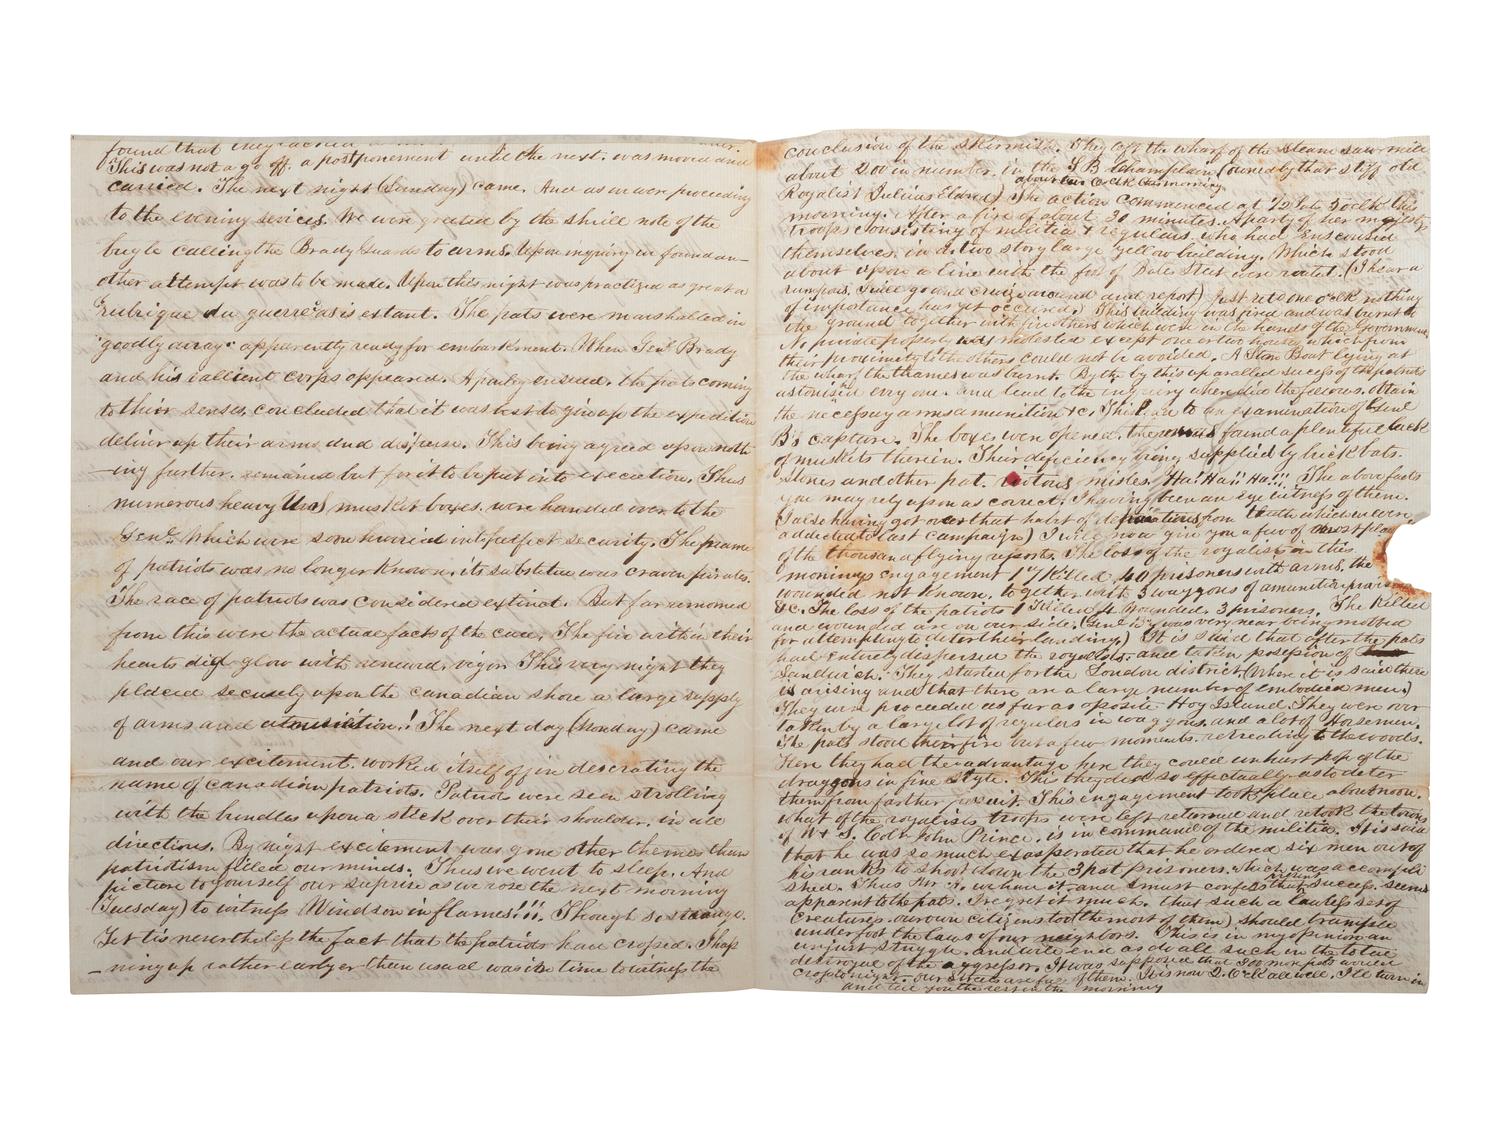 found that they
This was not a go off. a postponement until the next. was moved and
carried. The next night (Sunday) came. And as we were proceeding
to the evening sevices. We were greeted by the shrill note of the
bugle calling the Brady Guards to arms. Upon inquiry we found an—
other attempt was to be made. Upon this night was practized as great a
Rubrique du guerre as is extant. The pats were marshalled in
"goodly array" apparently ready for embarkment. When Genl Brady
and his vallient corps appeared. A parley ensued. the pats coming
to their senses, concluded that it was best to give up the expedition
deliver up their arms and disperse. This being agreed upon noth
—ing further. remained but for it to be put into execution. Thus
numerous heavy U.S musket boxes. were handed over to the
Genl. Which were some hurried into perfect security. The name
of patriots was no longer known. its substitue was craven pirates.
The race of patriots was considered extinct. But far removed
from this were the actual facts of the case. The fire within their
hearts did glow with renewed vigor This very night they
placed securely upon the Canadian shore a large supply
of arms and amunition! The next day (Monday) came
and our excitement worked itself off in descrating the
name of canadian patriots. Patriots were seen strolling
with the bundles upon a stick over their shoulder. in all
directions. By night excitement was gone other themes than
patriotism filled our minds. Thus we went to sleep. And
picture to yourself our suprise as we rose the next morning
(Tuesday) to witness Windsor in flames!!!. Though so strange.
Yet tis nevertheless the fact that the patriots have crossed. I hap
—ning up rather earlyer then usual was in time to witness the
conclusion of the skermish. They left the wharf of the steam saw mill
about 200 in number, in the S B Champlain (owned by that stiff old
about two O clk this morning
Royalist Julius Eldred) The action commenced at 1/2 to 5 oclk this
morning. After a fire of about 30 minutes. A party of her majesty
troops consisting of militia & regulars, who had ensconsed
themselves in a two story large yellow building. Which stood
about upon a line with the foot of Bates Street were routed. (I hear a
rumpus, I will go and cruize around and report) Just reto one o'clk nothing
of importance has yet occured.) This building was fired and was burnt to
the ground together with five others which were in the hands of the Government
No private property was molested except one or two houses which from
their proximity to the others could not be avoided. A Steam Boat lying at
the wharf the Thames was burnt. By the by this uparalled sucess of the patriots
astonised evry one. and lead to the inquiry where did the fellows obtain
the necessary arms amunition &c. This led to an examination of Genl
B's capture. The boxes were opened. they found a plentiful lack
of muskets therein. Their deficiency being supplied by brick bats.
stones and other pat. riotous misles. Ha! Ha!! Ha!!! The above facts
you may rely upon as correct. I having been an eye witness of them.
I also having got over that habit of from truth which we were
addicted to last campaign) I will now give you a few of most
of the thousand flying reports. The loss of the royalist in this
mornings engagement 17 killed 40 prisoners with arms. the
wounded not known. together with 3 waggons of amunition
&c. The loss of the patriots 1 killed 4 wounded. 3 prisoners. The killed
and wounded are on our side. (Genl By was very near being mobbed
for attempting to deter their landing.) It is said that after the pats
had entirely dispersed the royalists. and taken posession of
Sandwich. They started for the London district. (Where it is said there
is a rising and that there are a large number of embodied men.)
They were proceeded as far as oposite Hog Island They were over
taken by a large lot of regulars in waggons, and a lot of Horsemen.
The pats stood their fire but a few moments. retreating to the woods.
Here they had the advantage here they could unhurt pop off the
draggons in fine style. This they did so effectually as to deter
them from farther pursuit. This engagement took place about noon.
what of the royalists troops were left returned and retook the towns
of W & S. Col John Prince. is in command of the militia. It is said
that he was so much exasperated that he ordered six men out of
his ranks to shoot down the 3 pat prisoners. which was accompli
shed. Thus Mr. we have it. and I must confess that success seems
apparent to the pats. I regret it much. that such a lawless set of
creatures. our own citizens too (the most of them) should trample
underfoot the laws of our neighbors. This is in my opinion an
unjust struggle. and will end as do all such in the total
destroyal of the aggressor. It was supposed that 300 more pats would
cross to night. our streets are full of them. It is now 2. O'clk all well. I'll turn in
and tell you the rest in the morning